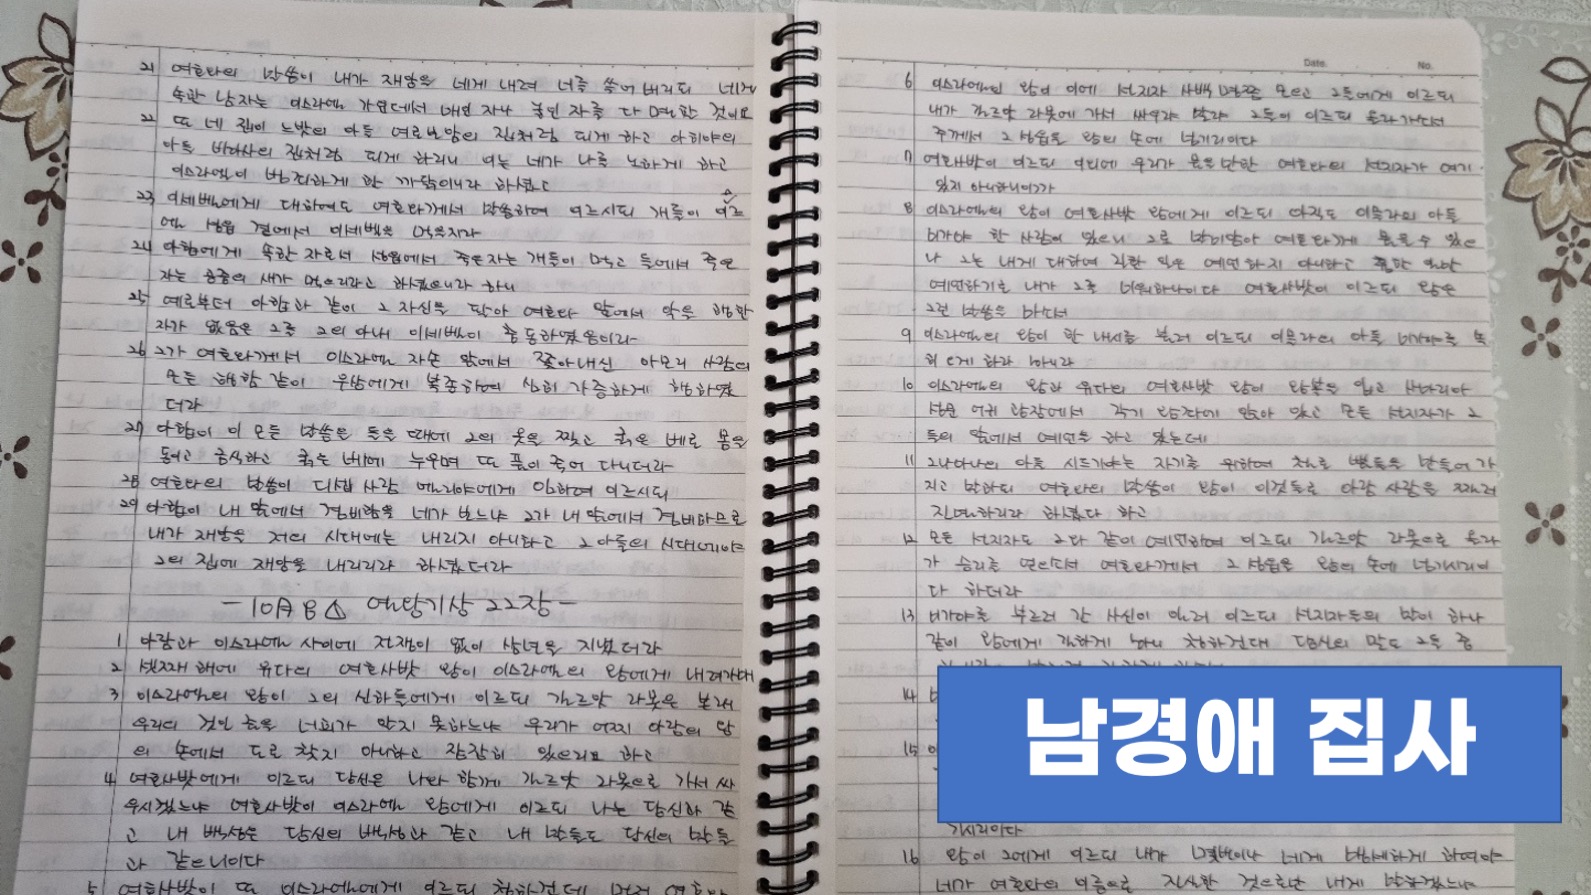 21 여호와의 말씀이 내가 재앙을 네게 내려 너를 쓸어 버리되 네게
속한 남자는 이스라엘 가운데에서 매인 자나 놓인 자를 다 멸할 것이요
22 또 네 집이 느밧의 아들 여로보암의 집처럼 되게 하고 아히야의
아들 바아사의 집처럼 되게 하리니 이는 네가 나를 노하게 하고
이스라엘이 범죄하게 한 까닭이니라 하셨고
23 이세벨에게 대하여도 여호와께서 말씀하여 이르시되 개들이 이르
엘 성읍 곁에서 이세벨을 먹을지라
스
24 아합에게 속한 자로서 성읍에서 죽은자는 개들이 먹고 들에서 죽은
자는 공중의 새가 먹으리라고 하셨으니라 하니
25 예로부터 아합과 같이 그 자신을 팔아 여호와 앞에서 악을 행한
자가 없음은 그를 그의 아내 이세벨이 충동하였음이라
26 그가 여호와께서 이스라엘 자손 앞에서 쫓아내신 아모리 사람의
모든 행함 같이 우상에게 복종하여 심히 가증하게 행하였
더라
27 아합이 이 모든 말씀을 들을 때에 그의 옷을 찢고 굵은 베로 몸을
동이고 금식하고 굵은 베에 누우며 또 풀이 죽어 다니더라
28 여호와의 말씀이 디셉 사람 엘리야에게 임하여 이르시되
29 아합이 내 앞에서 겸비함을 네가 보느냐 그가 내 앞에서 겸비하므로
내가 재앙을 저의 시대에는 내리지 아니하고 그 아들의 시대에야
그의 집에 재앙을 내리리라 하셨더라
열왕기상 22장
1 아람과 이스라엘 사이에 전쟁이 없이 삼년을 지냈더라
2 셋째 해에 유다의 여호사밧 왕이 이스라엘의 왕에게 내려가매
3 이스라엘의 왕이 그의 신하들에게 이르되 길르앗 라못은 본래
우리의 것인 줄을 너희가 알지 못하느냐 우리가 어찌 아람의 왕
의 손에서 도로 찾지 아니하고 잠잠히 있으리요 하고
4 여호사밧에게 이르되 당신은 나와 함께 길르앗 라못으로 가서 싸
우시겠느냐 여호사밧이 이스라엘 왕에게 이르되 나는 당신과 같
고 내 백성은 당신의 백성과 같고 내 말들도 당신의 말들
과 같으니이다
5 여호사밧이 또 이스라엘에게 이르되 청하건대 먼저 여호와
Date. No.
6 이스라엘의 왕이 이에 선지자 사백 명쯤 모으고 그들에게 이르되
내가 길르앗 라못에 가서 싸우랴 말랴 그들이 이르되 올라가소서
주께서 그 성읍을 왕의 손에 넘기리이다
7 여호사밧이 이르되 이외에 우리가 물을만한 여호와의 선지자가 여기
있지 아니하니이까
8 이스라엘의 왕이 여호사밧 왕에게 이르되 아직도 이믈라의 아들
미가야 한 사람이 있으니 그로 말미암아 여호와께 물을 수 있으
나 그는 내게 대하여 길한 일은 예언하지 아니하고 흉한 일만
예언하기로 내가 그를 미워하나이다 여호사밧이 이르되 왕은
그런 말씀을 마소서
9 이스라엘의 왕이 한 내시를 불러 이르되 이믈라의 아들 미가야를 속
히 오게 하라 하니라
10 이스라엘의 왕과 유다의 여호사밧 왕이 왕복을 입고 사마리아
성문 어귀 광장에서 각기 왕좌에 앉아 있고 모든 선지자가 그
들의 앞에서 예언을 하고 있는데
11 그나아나의 아들 시드기야는 자기를 위하여 철로 뿔들을 만들어 가
지고 말하되 여호와의 말씀이 왕이 이것들로 아람 사람을 찔러
진멸하리라 하셨다 하고
12 모든 선지자도 그와 같이 예언하여 이르되 길르앗 라못으로 올라
가 승리를 얻으소서 여호와께서 그 성읍을 왕의 손에 넘기시리이
다 하더라
13 미가야를 부르러 간 사신이 일러 이르되 선지자들의 말이 하나
같이 왕에게 길하게 하니 청하건대 당신의 말도 그들 중
14
15
남경애 집사
기시리이다
16 왕이 그에게 이르되 내가 몇번이나 네게 맹세하게 하여야
네가 여호와의 이름으로 진실한 것으로만 내게 말하겠느냐